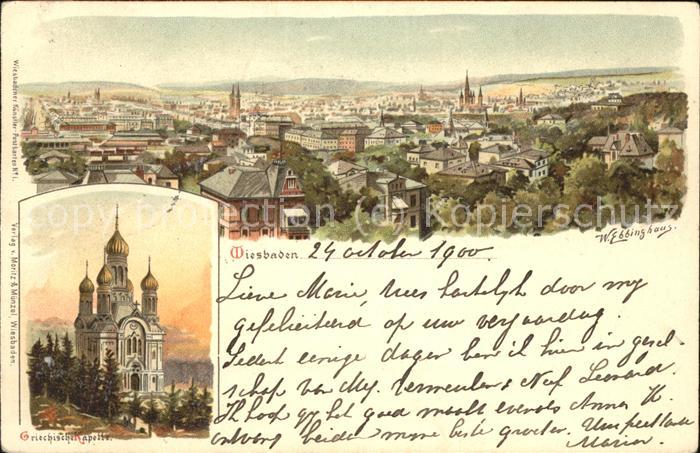 Wiesbadener Künstler-Postkarten No. 1.
Verlag v. Moritz & Münzel, Wiesbaden.
copyright protected Kopierschutz
W. Ebbinghaus.
Wiesbaden. 24 october 1900.
Lieve Marie, Wees hartelijk door my
gefeliciteerd op uw verjaardag.
Sedert eenige dagen ben ik hier in gezel-
schap van Mej. Vermeulen & Nef Leonard.
Ik hoop gy het goed maakt evenals Anna H.
ontvang beiden myne beste groeten. Uw
Marie.
Griechische Kapelle.